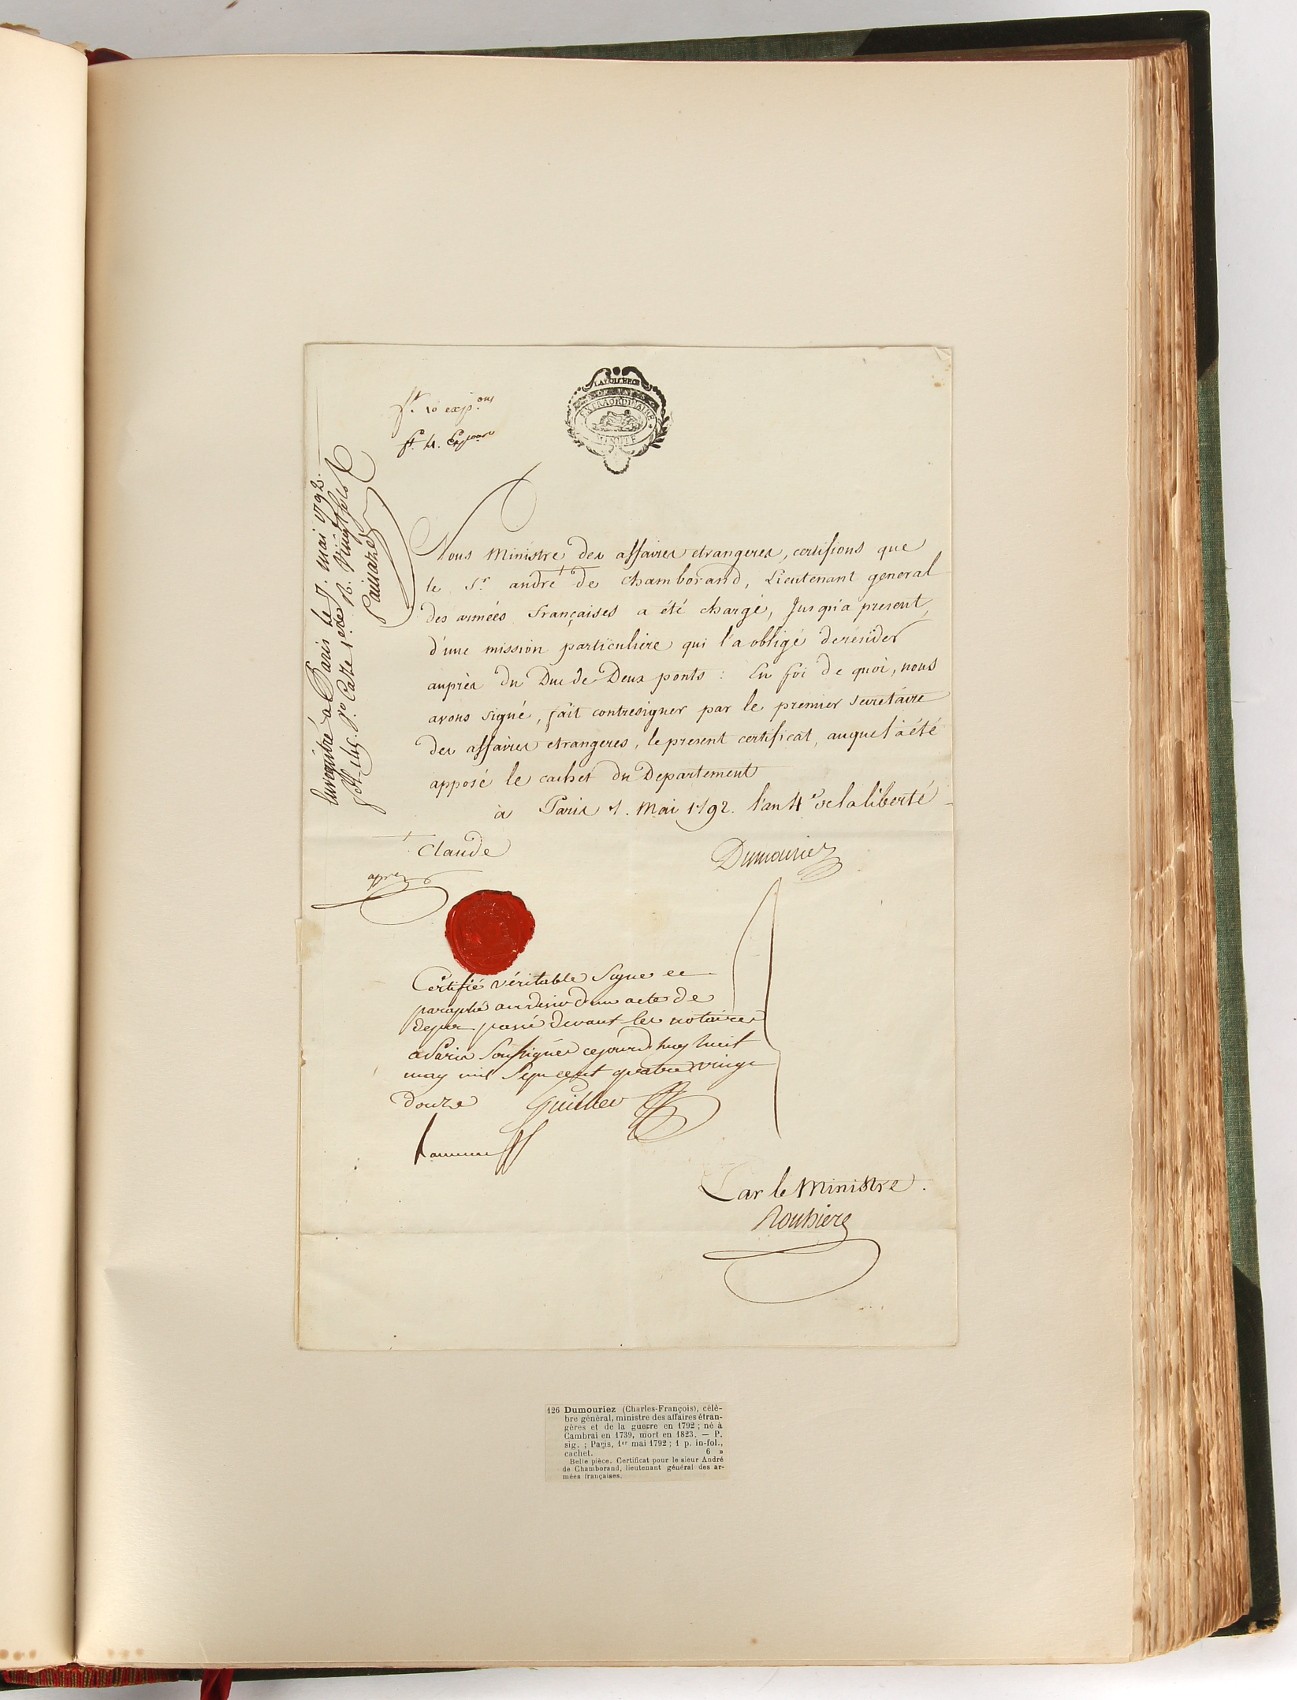 EXTRAORDINAIRE
MINUTE
Nous Ministre des affaires etrangeres, certifions que
le Sr. andré de Chamborand, Lieutenant general
des armées françaises a été chargé, Jusqu'a present,
d'une mission particuliere qui l'a obligé de résider
auprès du Duc de Deux ponts : En foi de quoi, nous
avons signé, fait contresigner par le premier secretaire
des affaires etrangeres, le present certificat, auquel a été
apposé le cachet du Departement
à Paris 1. Mai 1792. l'an 4e de la liberté
Claude
Dumouriez
Enregistré a Paris le 7. mai 1792.
Certifié véritable Signé et
paraphé au desir d'un acte de
depot passé devant les notaires
a Paris Soussignés cejourd'huy huit
may mil Sept cent quatre vingt
douze
Par le Ministre.
126 Dumouriez (Charles-François), célè-
bre général, ministre des affaires étran-
gères et de la guerre en 1792 ; né à
Cambrai en 1739, mort en 1823. — P.
sig. ; Paris, 1er mai 1792 ; 1 p. in-fol.,
cachet. 6 »
Belle pièce. Certificat pour le sieur André
de Chamborand, lieutenant général des ar-
mées françaises.